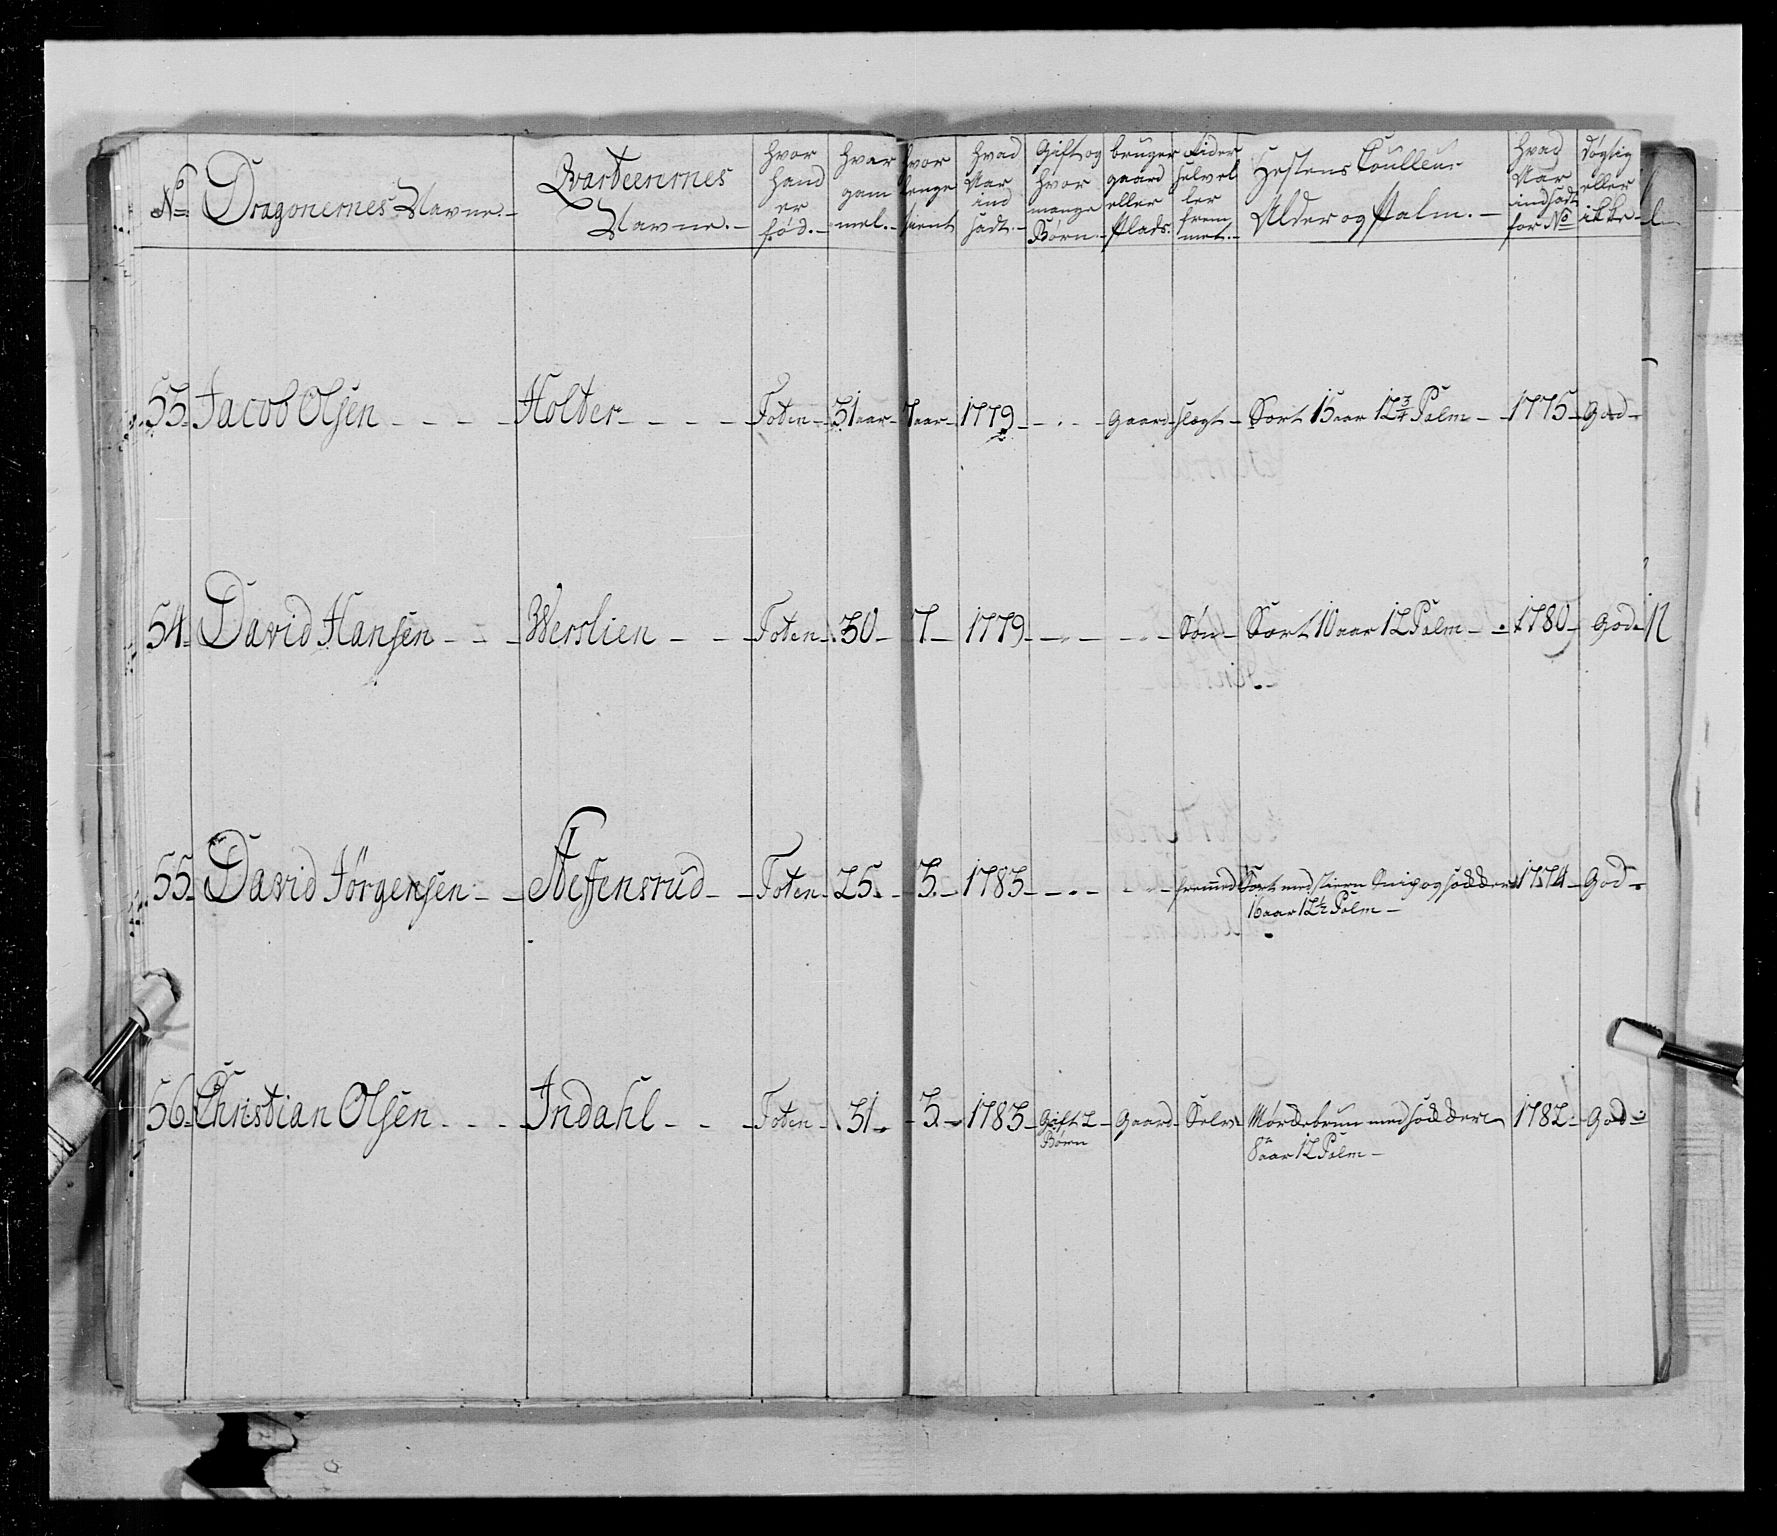 No Dragonernes Navne.- Qvarteernes Navne.- hvor hand er fød.- hvor gam mel.- hvor lenge tient hvad Aar ind sadt.- Gift og hvor mange Børn.- bruger gaard eller Plads.- Rider selv el ler frem met.- Hestens Coulleur Alder og Palm.- hvad Aar indsadt for No døgtig eller ikke.-
53. Jacob Olsen - - - - Holter - - - - Toten - 31 aar - 7 aar - 1779 - - . - gaard - slegt - Sort 15 aar 12 3/4 Palm - - 1775 - God -
54. David Hansen - - - Werslien - - - Toten - 30 - 7 - 1779 - - . - - . - Søn - Sort 10 aar 12 Palm - - 1780 - God -
55. David Jörgensen - - Steffensrud - - Toten - 25. - 3. - 1783 - - . - - . - fremed Sort med stiern Snip og sødder 1774 - God -
16 aar 12 1/2 Palm -
56. Christian Olsen - - - Indahl - - - Toten - 31. - 3. - 1783 - Gift 2 - Gaard - Selv - Mørdebrun med sødder 1782 - God -
Børn 8 aar 12 Palm -